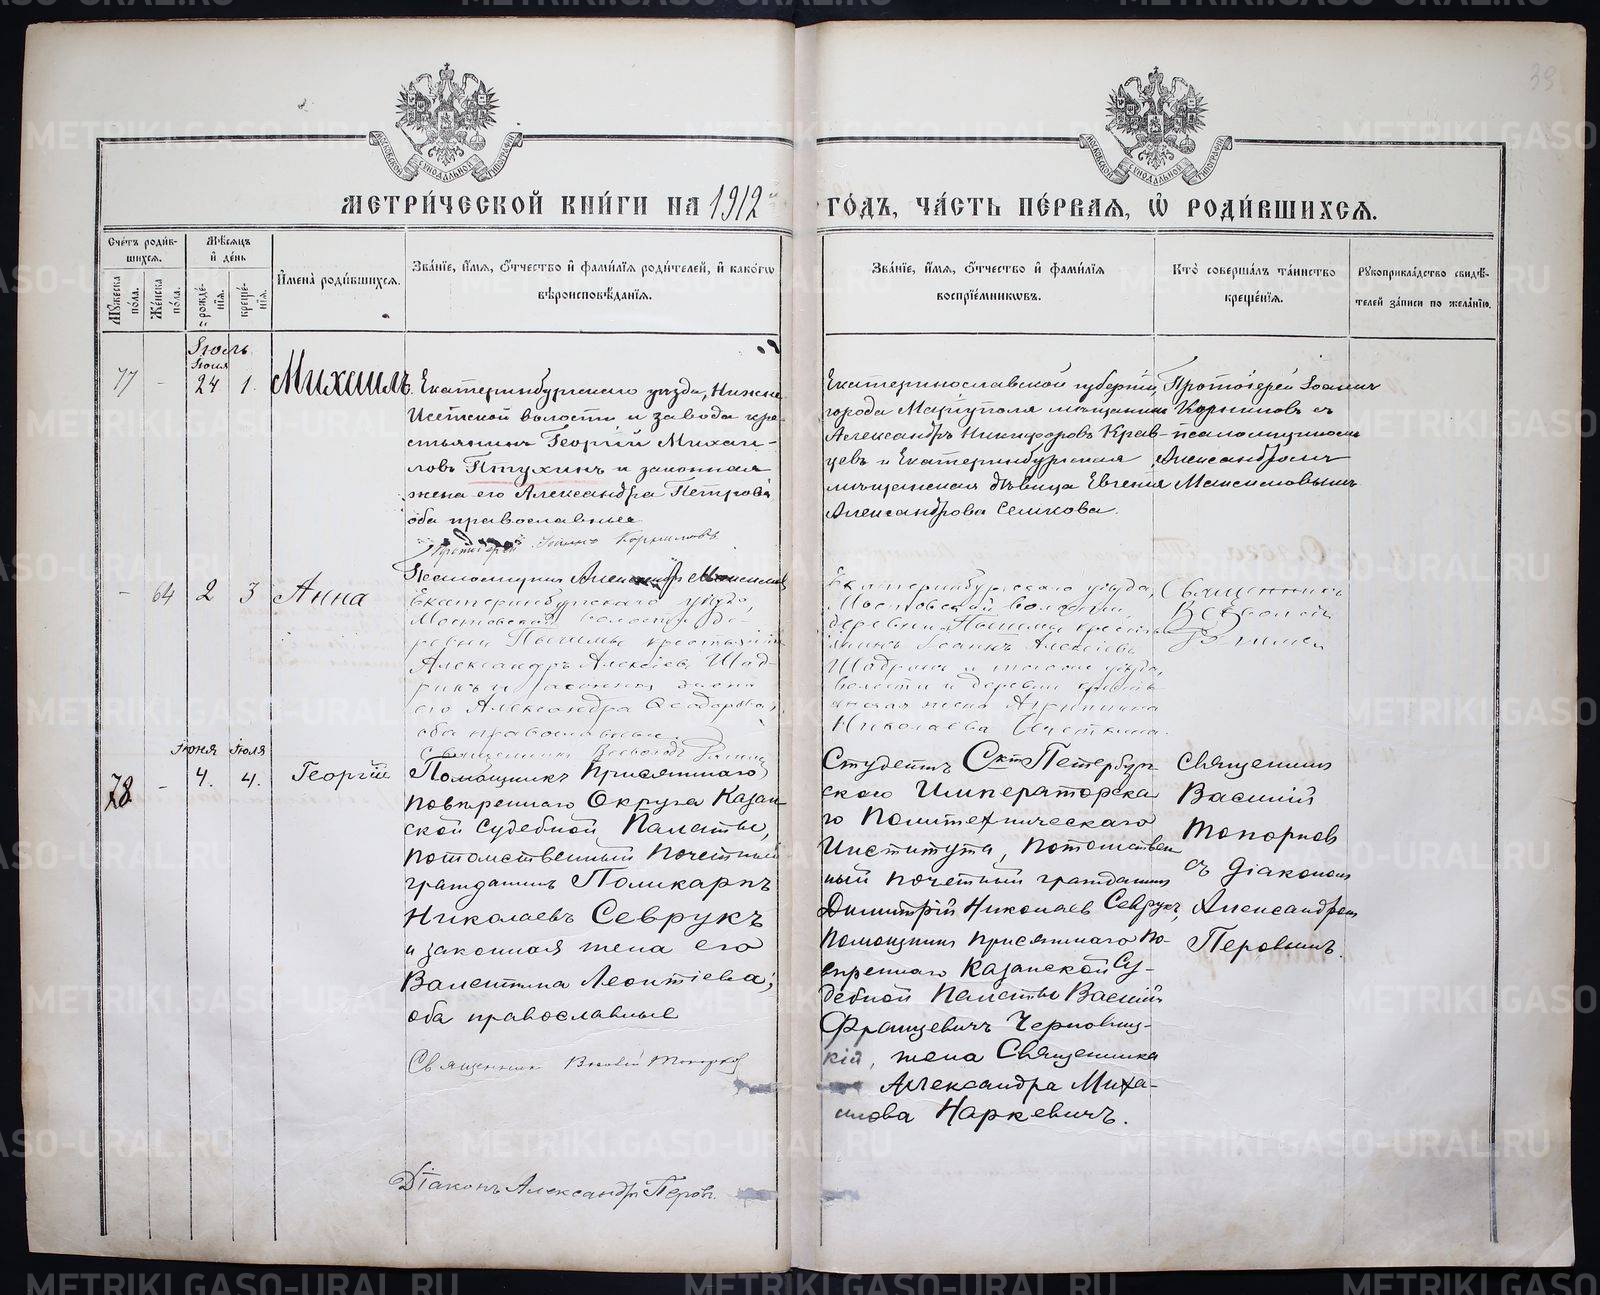 39
МОСКОВСКОЙ СѴНОДАЛЬНОЙ ТИПОГРАФІИ
МОСКОВСКОЙ СѴНОДАЛЬНОЙ ТИПОГРАФІИ
МЕТРИ́ЧЕСКОЙ КНИ́ГИ НА 1912
ГО́ДЪ, ЧА́СТЬ ПЕ́РВАЯ, Ѡ РОДИ́ВШИХСЯ.
Сче́тъ роди́в-
шихся.
Му́жеска
по́ла.
Же́нска
по́ла.
Мѣ́сяцъ
и де́нь
рожде́-
нїя.
креще́-
нїя.
И҆мена̀ роди́вшихся.
Зва́нїе, и҆́мя, ѻ҆́тчество и҆ фами́лїя роди́телей, и҆ како́гѡ
вѣроисповѣ́данїя.
Зва́нїе, и҆́мя, ѻ҆́тчество и҆ фами́лїя
воспрїе́мникѡвъ.
Кто̀ соверша́лъ та́инство
креще́нїя.
Рꙋкоприкла́дство свидѣ́-
телей за́писи по жела́нїю.
Іюль
Іюня
77 - 24 1. Михаилъ.
Екатеринбургскаго уѣзда, Нижне
Исетской волости и завода кре-
стьянинъ Георгій Михаи-
ловъ Птухинъ и законная
жена его Александра Петрова
оба православные
Протоіерей Іоаннъ Корниловъ
Псаломщикъ Александръ
Екатеринославской губерніи,
города Маріуполя мѣщанинъ
Александръ Никифоровъ Крав-
цевъ и Екатеринбургская
мѣщанская дѣвица Евгенія
Александрова Семкова.
Протоіерей Іоаннъ
Корниловъ съ
псаломщикомъ
Александромъ
Максимовымъ
- 64 2 3 Анна
Екатеринбургскаго уѣзда,
Мостовской волости де-
ревни крестьянинъ
Александръ Алексѣевъ Шад-
ринъ и законная жена
его Александра Ѳеодорова,
оба православные.
Священникъ Всеволодъ
Екатеринбургскаго уѣзда,
Мостовской волости
деревни крестья-
нинъ Іоаннъ Алексѣевъ
Шадринъ и того же уѣзда,
волости и деревни кресть-
янская жена Агриппина
Николаева
Священникъ
Всеволодъ
Іюня Іюля
78 - 4. 4. Георгій
Помощникъ Присяжнаго
Повѣреннаго Округа Казан-
ской Судебной Палаты,
потомственный почетный
гражданинъ Поликарпъ
Николаевъ Севрукъ
и законная жена его
Валентина Леонтіева;
оба православные
Священникъ Василій Топорков
Діаконъ Александръ Перовъ.
Студентъ Скт Петербург-
скаго Императорска
го Политехническаго
Института, потомствен
ный почетный гражданинъ
Димитрій Николаев Севрукъ,
Помощникъ присяжнаго по-
вѣреннаго Казанской Су-
дебной Палаты Василій
Францевичъ
кій, жена Священника
Александра Миха-
илова Наркевичъ.
Священникъ
Василій
Топорков
съ Діакономъ
Александромъ
Перовымъ.
METRIKI.GASO-URAL.RU